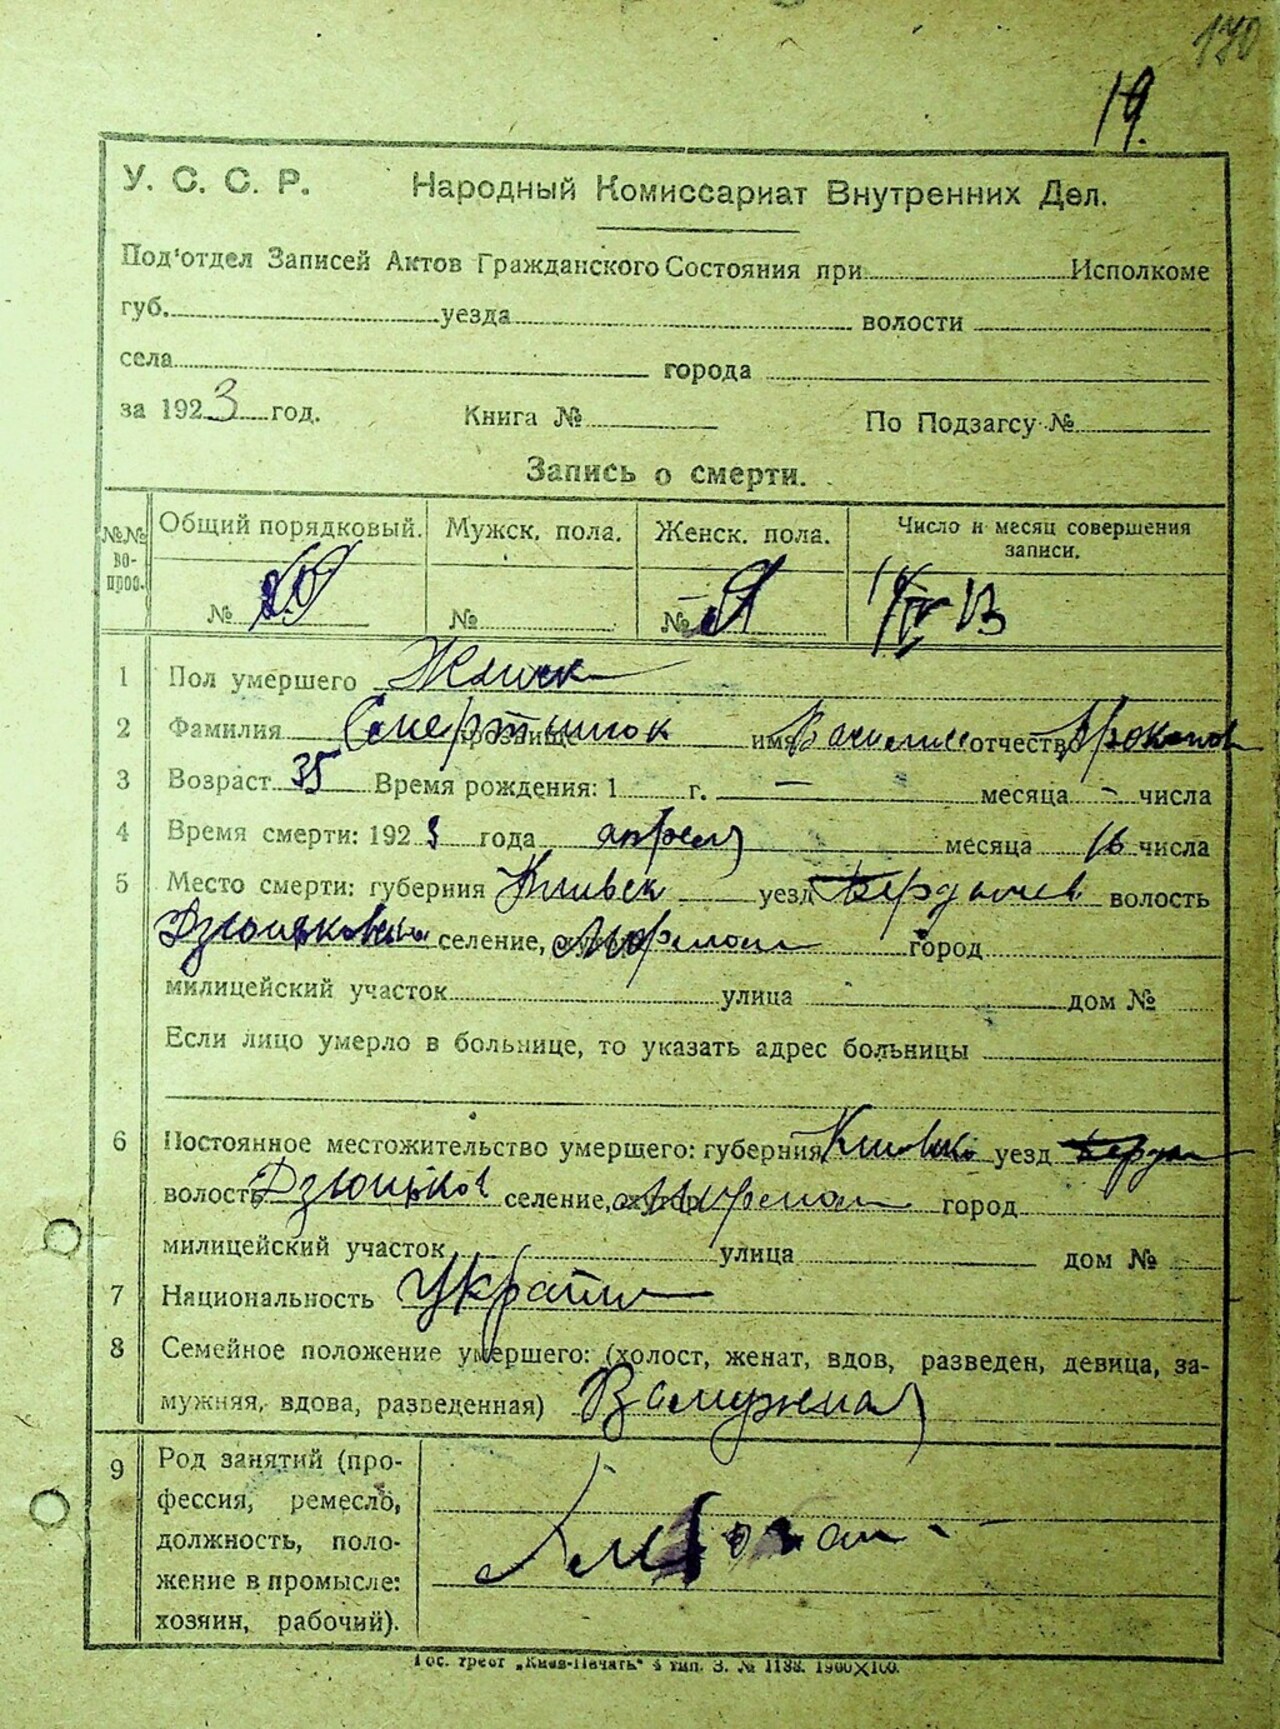 170
19.
У. С. С. Р. Народный Комиссариат Внутренних Дел.
Под'отдел Записей Актов Гражданского Состояния при Исполкоме
губ. уезда волости
села города
за 1923 год. Книга № По Подзагсу №
Запись о смерти.
№№ вопрос. Общий порядковый. Мужск. пола. Женск. пола. Число и месяц совершения записи.
№ № №
1 Пол умершего Женск
2 Фамилия прозвище имя отчество
3 Возраст 35 Время рождения: 1 г. — месяца - числа
4 Время смерти: 1923 года апреля месяца 16 числа
5 Место смерти: губерния Киевск уезд Бердичев волость
селение, хутор город
милицейский участок улица дом №
Если лицо умерло в больнице, то указать адрес больницы
6 Постоянное местожительство умершего: губерния уезд
волость Дзюньков селение, хутор город
милицейский участок улица дом №
7 Национальность Украин
8 Семейное положение умершего: (холост, женат, вдов, разведен, девица, за-
мужняя, вдова, разведенная) Замужная
9 Род занятий (про-
фессия, ремесло,
должность, поло-
жение в промысле:
хозяин, рабочий).
Гос. трест „Киев-Печать“ 4 тип. З. № 1188. 1900X100.